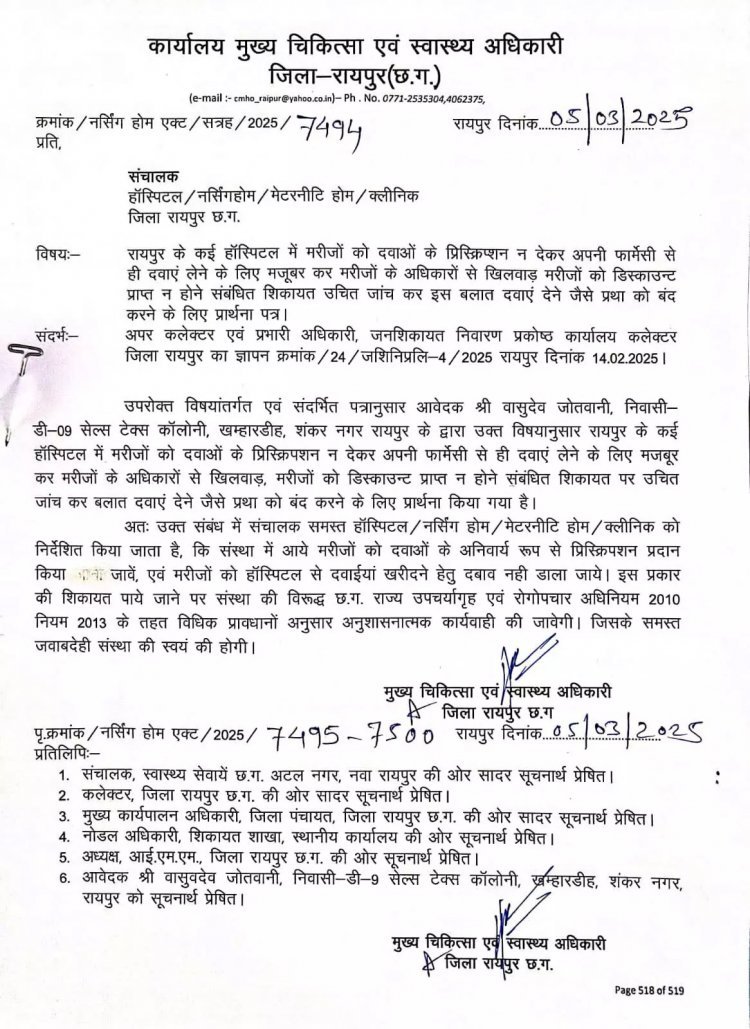 कार्यालय मुख्य चिकित्सा एवं स्वास्थ्य अधिकारी
जिला–रायपुर(छ.ग.)
(e-mail :- cmho_raipur@yahoo.co.in)– Ph . No. 0771-2535304,4062375,
क्रमांक/नर्सिंग होम एक्ट/सत्रह/2025/ 7494 रायपुर दिनांक 05/03/2025
प्रति,
संचालक
हॉस्पिटल/नर्सिंगहोम/मेटरनीटि होम/क्लीनिक
जिला रायपुर छ.ग.
विषयः– रायपुर के कई हॉस्पिटल में मरीजों को दवाओं के प्रिस्क्रिप्शन न देकर अपनी फार्मेसी से
ही दवाएं लेने के लिए मजबूर कर मरीजों के अधिकारों से खिलवाड़ मरीजों को डिस्काउन्ट
प्राप्त न होने संबंधित शिकायत उचित जांच कर इस बलात दवाएं देने जैसे प्रथा को बंद
करने के लिए प्रार्थना पत्र।
संदर्भः– अपर कलेक्टर एवं प्रभारी अधिकारी, जनशिकायत निवारण प्रकोष्ठ कार्यालय कलेक्टर
जिला रायपुर का ज्ञापन क्रमांक/24/जशिनिप्रलि–4/2025 रायपुर दिनांक 14.02.2025।
उपरोक्त विषयांतर्गत एवं संदर्भित पत्रानुसार आवेदक श्री वासुदेव जोतवानी, निवासी–
डी–09 सेल्स टेक्स कॉलोनी, खम्हारडीह, शंकर नगर रायपुर के द्वारा उक्त विषयानुसार रायपुर के कई
हॉस्पिटल में मरीजों को दवाओं के प्रिस्क्रिपशन न देकर अपनी फार्मेसी से ही दवाएं लेने के लिए मजबूर
कर मरीजों के अधिकारों से खिलवाड़, मरीजों को डिस्काउन्ट प्राप्त न होने संबंधित शिकायत पर उचित
जांच कर बलात दवाएं देने जैसे प्रथा को बंद करने के लिए प्रार्थना किया गया है।
अतः उक्त संबंध में संचालक समस्त हॉस्पिटल/नर्सिंग होम/मेटरनीटि होम/क्लीनिक को
निर्देशित किया जाता है, कि संस्था में आये मरीजों को दवाओं के अनिवार्य रूप से प्रिस्क्रिपशन प्रदान
किया जावें, एवं मरीजों को हॉस्पिटल से दवाईयां खरीदने हेतु दबाव नही डाला जाये। इस प्रकार
की शिकायत पाये जाने पर संस्था की विरूद्ध छ.ग. राज्य उपचर्यागृह एवं रोगोपचार अधिनियम 2010
नियम 2013 के तहत विधिक प्रावधानों अनुसार अनुशासनात्मक कार्यवाही की जावेगी। जिसके समस्त
जवाबदेही संस्था की स्वयं की होगी।
मुख्य चिकित्सा एवं स्वास्थ्य अधिकारी
जिला रायपुर छ.ग
पृ.क्रमांक/नर्सिंग होम एक्ट/2025/ 7495-7500 रायपुर दिनांक 05/03/2025
प्रतिलिपिः–
1. संचालक, स्वास्थ्य सेवायें छ.ग. अटल नगर, नवा रायपुर की ओर सादर सूचनार्थ प्रेषित।
2. कलेक्टर, जिला रायपुर छ.ग. की ओर सादर सूचनार्थ प्रेषित।
3. मुख्य कार्यपालन अधिकारी, जिला पंचायत, जिला रायपुर छ.ग. की ओर सादर सूचनार्थ प्रेषित।
4. नोडल अधिकारी, शिकायत शाखा, स्थानीय कार्यालय की ओर सूचनार्थ प्रेषित।
5. अध्यक्ष, आई.एम.एम., जिला रायपुर छ.ग. की ओर सूचनार्थ प्रेषित।
6. आवेदक श्री वासुवदेव जोतवानी, निवासी–डी–9 सेल्स टेक्स कॉलोनी, खम्हारडीह, शंकर नगर,
रायपुर को सूचनार्थ प्रेषित।
मुख्य चिकित्सा एवं स्वास्थ्य अधिकारी
जिला रायपुर छ.ग.
Page 518 of 519